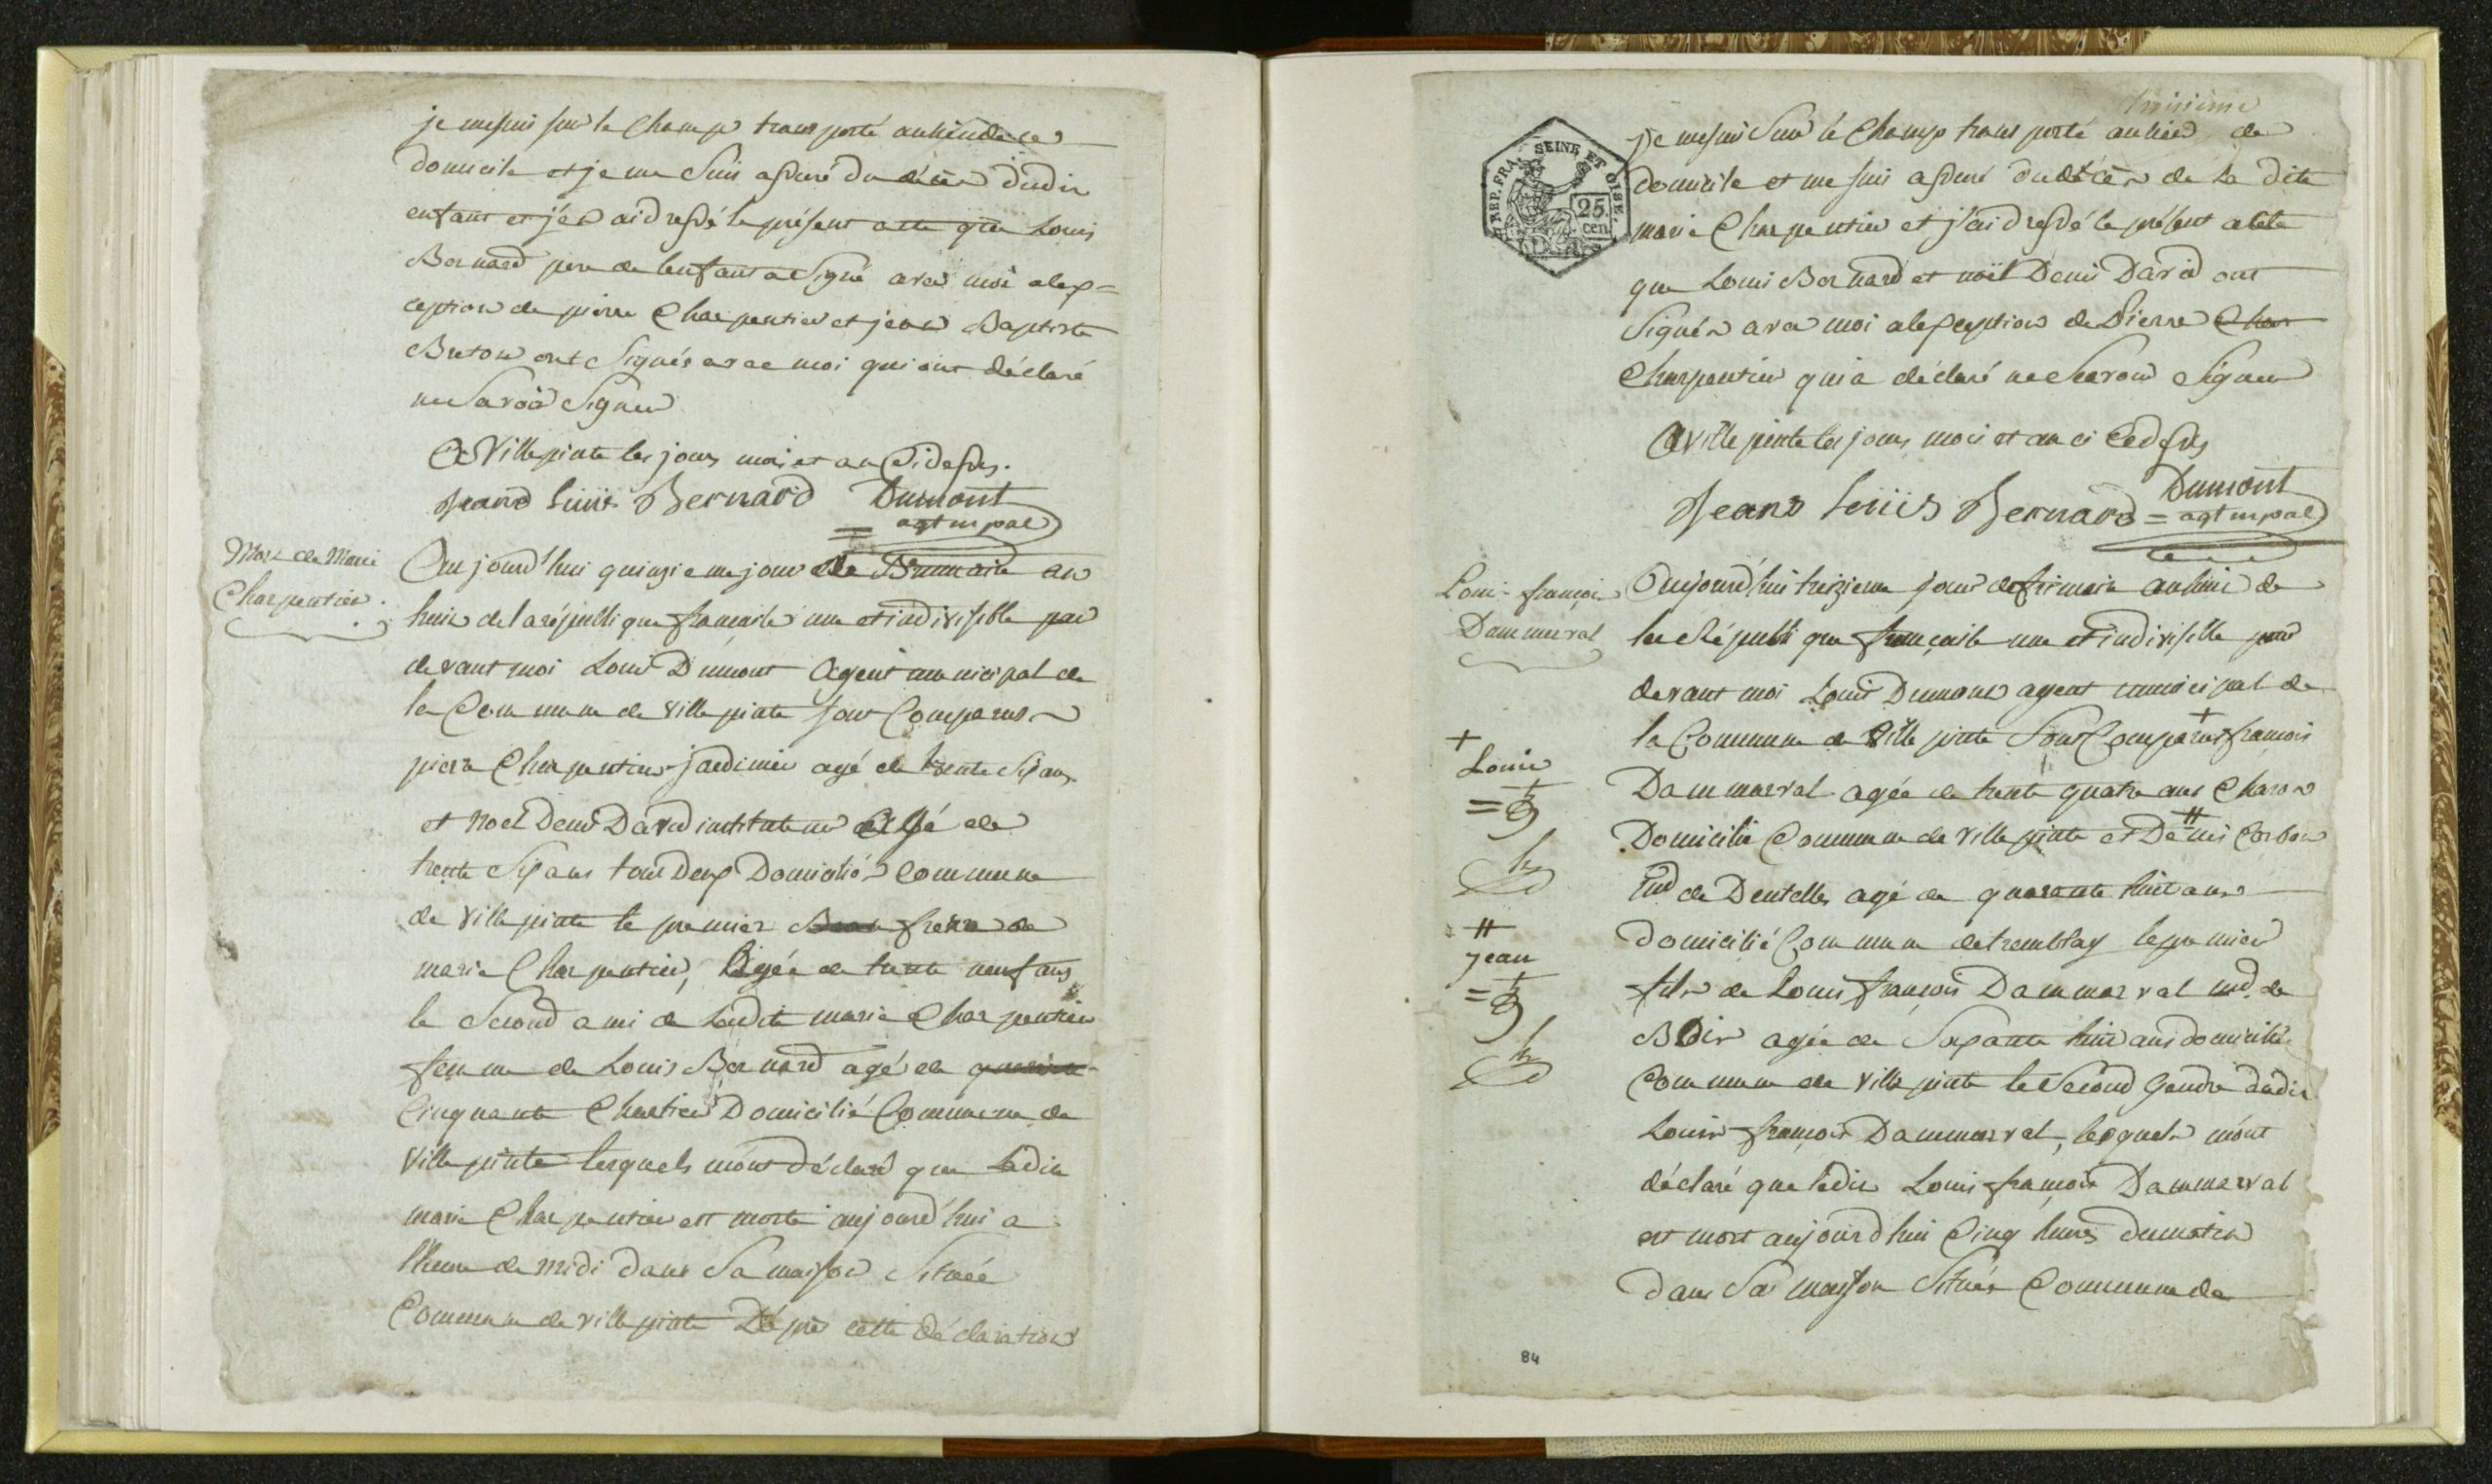 je me suis sur le champ transporté au lieu de ce
domicile et je me suis assuré du décès dudit
enfant et j'en ai dressé le présent acte que Louis
Bernard pere de l'enfant a signé avec moi a lex=
ception de pierre Charpentier et jean Baptiste
Breton ont signés avec moi qui ont déclaré
ne savoir signer
A Villepinte les jours mois et an Cidessus.
Jean Louis Bernard Dumont
= agt mpal
Mort de Marie
Charpentier.
Aujourd'hui quinzieme jour de Brumaire an
huit de la république francaise une et indivisible par
devant moi Louis Dumont Agent municipal de
la Commune de Villepinte sont Comparus
pierre Charpentier jardinier agé de trente six ans
et Noel Denis David instituteur agé de
trente six ans tous deux Domiciliés Commune
de Villepinte le premier frere de
marie Charpentier, Agée de trente neuf ans
le Second ami de Ladite marie Charpentier
femme de Louis Bernard agé de
Cinquante Chartier Domicilié Commune de
Villepinte lesquels m'ont déclaré que Ladite
marie Charpentier est morte aujourd'hui a
l'heure de midi dans Sa maison Située
Commune de villepinte D'après cette déclaration
troisieme
REP. FRA. SEINE ET OISE.
25.
cen.
je me suis Sur le Champ transporté au lieu de
domicile et me suis assuré du décès de la dite
marie Charpentier et j'ai dressé le présent acte
que Louis Bernard et noël Denis David ont
Signés avec moi a lexception de Pierre Char
Charpentier qui a déclaré ne Savoir Signer
A Villepinte les jours, mois et an ci Cedessus
Jean Louis Bernard Dumont
= agt mpal
Loui- françois
Dammerval
Aujourd'hui treizieme jour de frimaire an huit de
la République française une et indivisible par
devant moi Louis Dumont agent municipal de
la Commune de Villepinte Sont Comparus + francois
+
Louis
Dammerval agée de trente quatre ans Charon
Domicilié Commune de Villepinte et Denis # Corbon
md de Dentelles agé de quarante huit ans
#
jean
domicilié Commune de tremblay le premier
fils de Louis françois Dammerval md. de
Bois agée de Soixante huit ans domicilié
Commune de Villepinte le Second Gendre dudit
Louis françois Dammerval, lesquels m'ont
déclaré que ledit Louis françois Dammerval
est mort aujourd'hui Cinq heures du matin
dans Sa maison Située Commune de
84